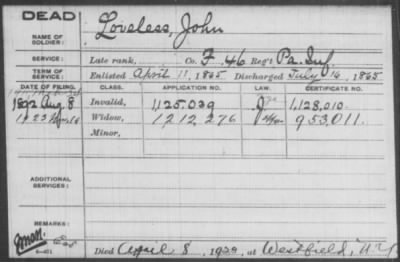 DEAD
NAME OF SOLDIER: Loveless, John
SERVICE: Late rank, Co. F. 46 Reg't Pa. Inf.
TERM OF SERVICE: Enlisted April 11, 1865 Discharged July 16, 1865
DATE OF FILING. CLASS. APPLICATION NO. LAW. CERTIFICATE NO.
1892 Aug. 8 Invalid, 1,125,039 1,128,010
1923 Widow, 1212,276 953,011.
Minor,
ADDITIONAL SERVICES:
REMARKS:
6-401
Died April 8, 1923, at Westfield, N.Y.